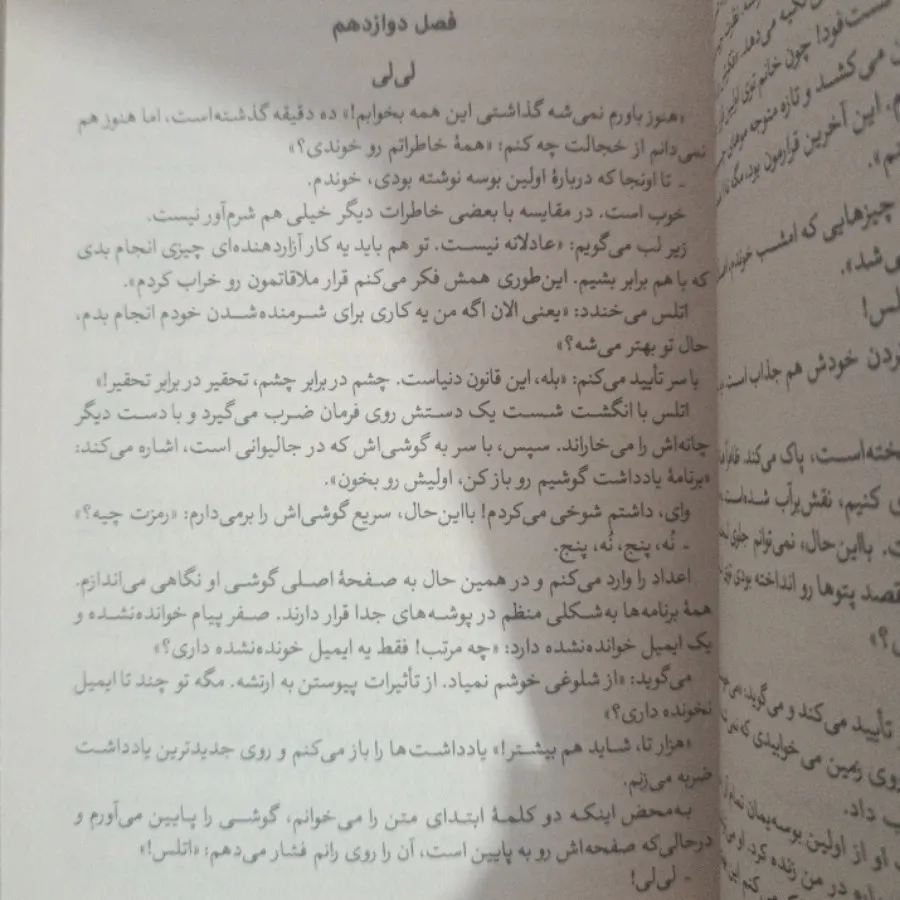 فصل دوازدهم
لی‌لی
«هنوز باورم نمی‌شه گذاشتی این همه بخوابم!» ده دقیقه گذشته‌است، اما هنوز هم
نمی‌دانم از خجالت چه کنم: «همهٔ خاطراتم رو خوندی؟»
- تا اونجا که دربارهٔ اولین بوسه نوشته بودی، خوندم.
خوب است. در مقایسه با بعضی خاطرات دیگر خیلی هم شرم‌آور نیست.
زیر لب می‌گویم: «عادلانه نیست. تو هم باید یه کار آزاردهنده‌ای چیزی انجام بدی
که با هم برابر بشیم. این‌طوری همش فکر می‌کنم قرار ملاقاتمون رو خراب کردم».
اتلس می‌خندد: «یعنی الان اگه من یه کاری برای شرمنده‌شدن خودم انجام بدم،
حال تو بهتر می‌شه؟»
با سر تأیید می‌کنم: «بله، این قانون دنیاست. چشم در برابر چشم، تحقیر در برابر تحقیر!»
اتلس با انگشت شست یک دستش روی فرمان ضرب می‌گیرد و با دست دیگر
چانه‌اش را می‌خاراند. سپس، با سر به گوشی‌اش که در جالیوانی است، اشاره می‌کند:
«برنامهٔ یادداشت گوشیم رو باز کن، اولیش رو بخون».
وای، داشتم شوخی می‌کردم! بااین‌حال، سریع گوشی‌اش را برمی‌دارم: «رمزت چیه؟»
- نُه، پنج، نُه، پنج.
اعداد را وارد می‌کنم و در همین حال به صفحهٔ اصلی گوشی او نگاهی می‌اندازم.
همهٔ برنامه‌ها به‌شکلی منظم در پوشه‌های جدا قرار دارند. صفر پیام خوانده‌نشده و
یک ایمیل خوانده‌نشده دارد: «چه مرتب! فقط یه ایمیل خونده‌نشده داری؟»
می‌گوید: «از شلوغی خوشم نمیاد. از تأثیرات پیوستن به ارتشه. مگه تو چند تا ایمیل
نخونده داری؟»
«هزار تا، شاید هم بیشتر!» یادداشت‌ها را باز می‌کنم و روی جدیدترین یادداشت
ضربه می‌زنم.
به‌محض اینکه دو کلمهٔ ابتدای متن را می‌خوانم، گوشی را پایین می‌آورم و
درحالی‌که صفحه‌اش رو به پایین است، آن را روی رانم فشار می‌دهم: «اتلس!»
- لی‌لی!
تکیه می‌دهد.
چون خانم توی اولین
می‌کشد و تازه متوجه
این آخرین قرارمون بود،
چیزهایی که امشب خوندم
‌شد».
خودش هم جذاب است
است، پاک می‌کند
کنیم، نقش‌برآب شده‌است
بااین‌حال، نمی‌توانم جلوی
قصد پتوها رو انداخته بودی
تأیید می‌کند و می‌گوید:
روی زمین می‌خوابیدی که
داد.
او از اولین بوسه‌یمان تمام
در من زنده کرد. او